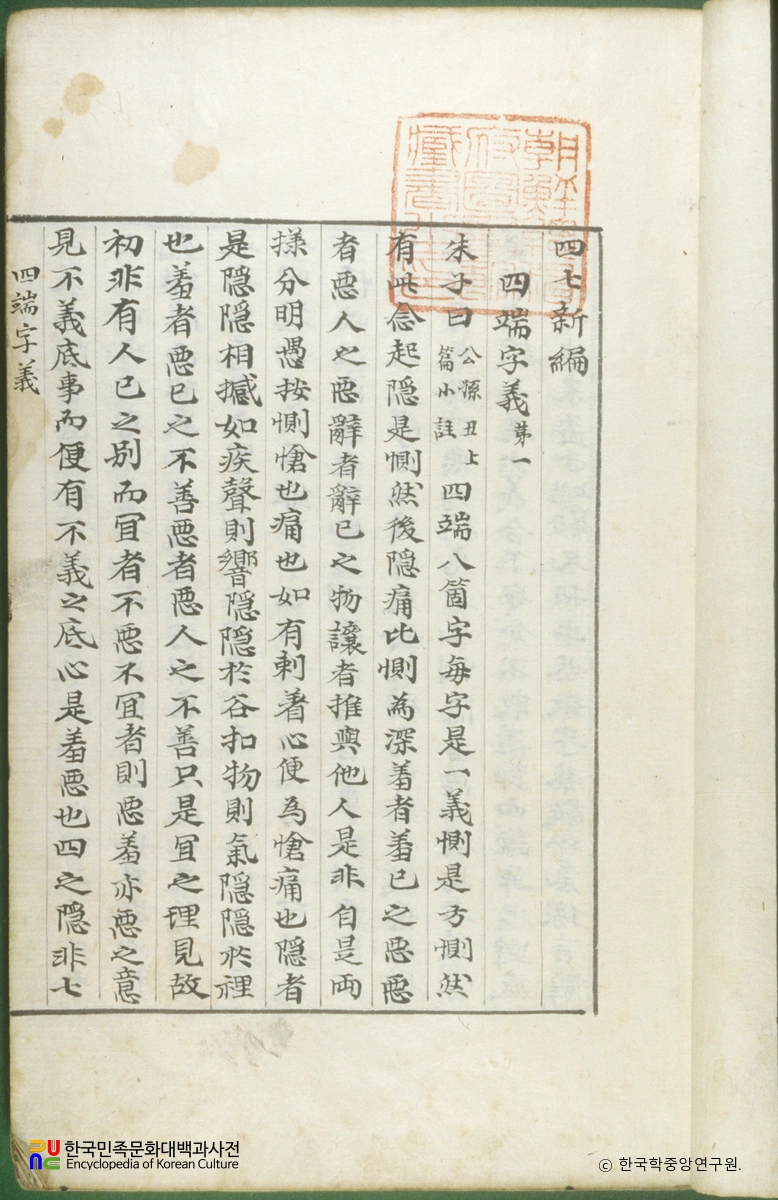 四七新編
四端字義 苐一
朱子曰 公孫丑上篇小註 四端八箇字每字是一義惻是方惻然
有此念起隱是惻然後隱痛比惻為深羞者羞己之惡惡
者惡人之惡辭者辭己之物讓者推與他人是非自是兩
㨾分明愚按惻愴也痛也如有刺着心便為愴痛也隱者
是隱隱相撼如疾聲則響隱隱於谷扣物則氣隱隱於裡
也羞者惡己之不善惡者惡人之不善只是冝之理見故
初非有人己之别而冝者不惡不冝者則惡羞亦惡之意
見不義底事而便有不義之底心是羞惡也四之隱非七
四端字義
한국민족문화대백과사전
Encyclopedia of Korean Culture
ⓒ 한국학중앙연구원.